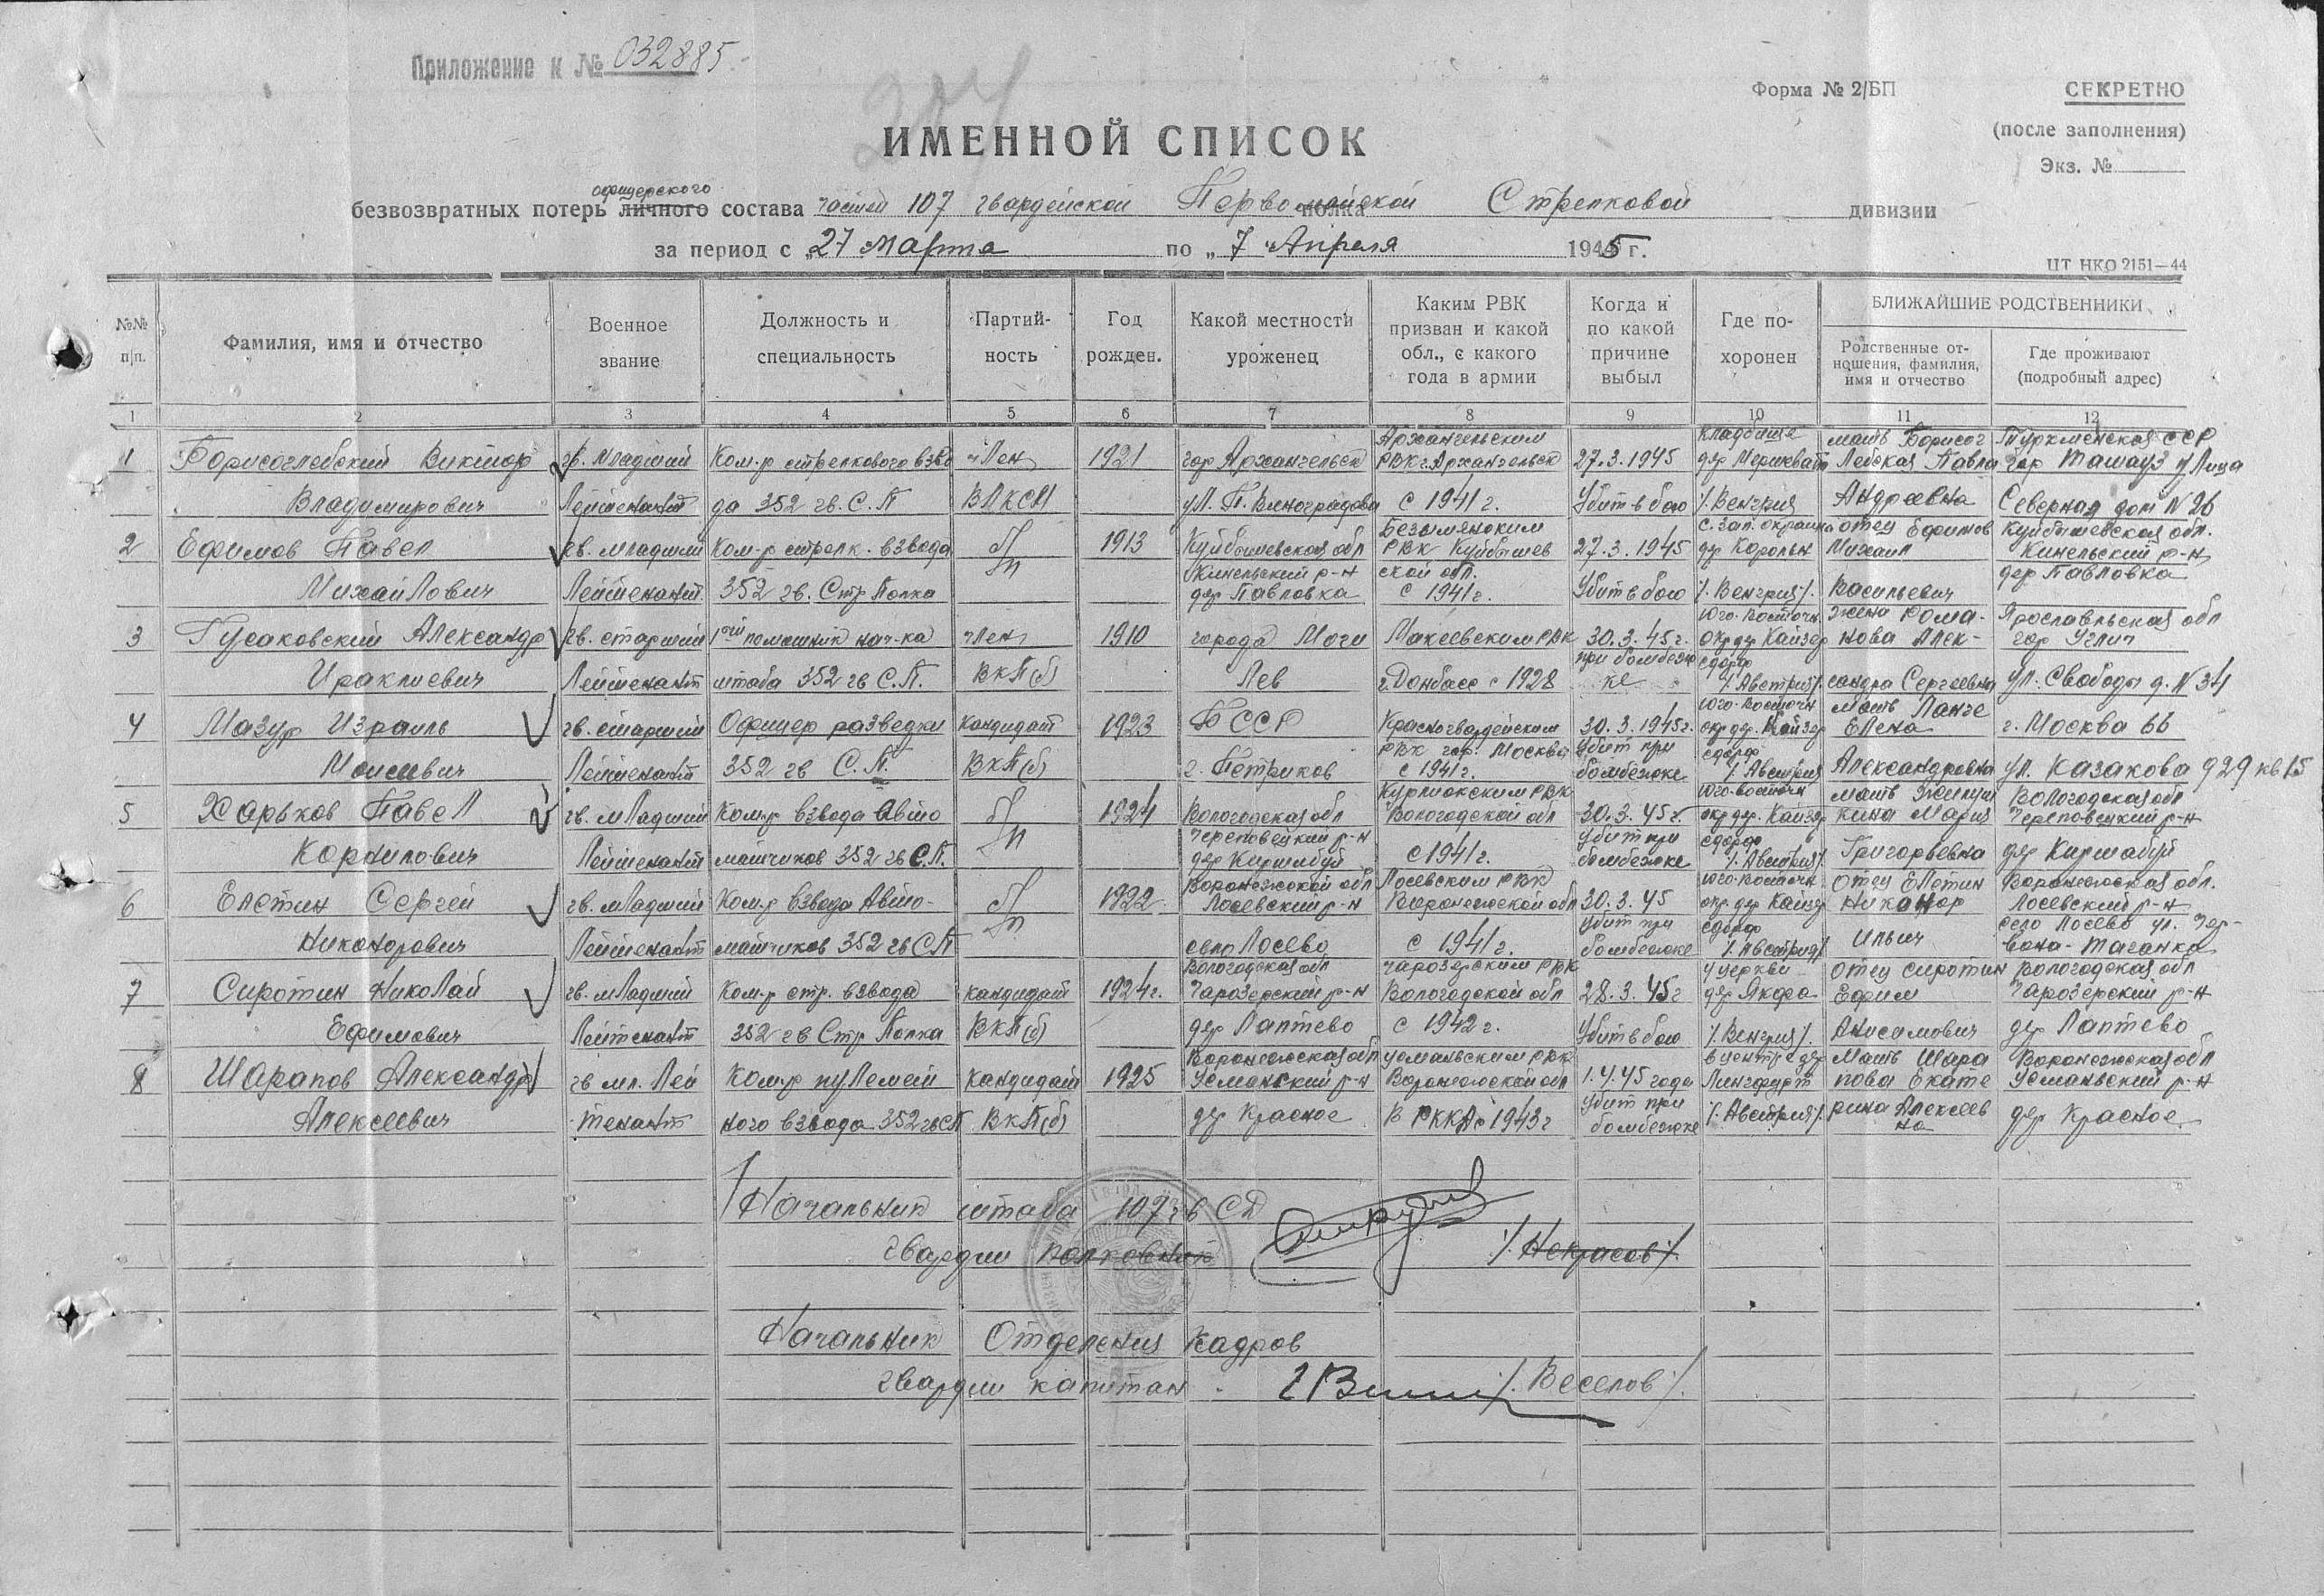 Приложение к № 032885
204
Форма № 2/БП
СЕКРЕТНО
(после заполнения)
Экз. №
ИМЕННОЙ СПИСОК
офицерского
безвозвратных потерь личного состава частей 107 гвардейской Первомайской полка Стрелковой дивизии
за период с „27 Марта по „7 Апреля 1945 г.
ЦТ НКО 2151—44
№№ п/п.
Фамилия, имя и отчество
Военное звание
Должность и специальность
Партий-
ность
Год рожден.
Какой местности уроженец
Каким РВК призван и какой обл., с какого года в армии
Когда и по какой причине выбыл
Где по-
хоронен
БЛИЖАЙШИЕ РОДСТВЕННИКИ
Родственные от-
ношения, фамилия, имя и отчество
Где проживают (подробный адрес)
1 2 3 4 5 6 7 8 9 10 11 12
Архангельским кладбище мать Борисог Туркменская ССР
1 Борисоглебский Виктор гв. Младший Ком-р стрелкового взво член 1921 гор Архангельск РВК г. Архангельск 27.3.1945 дер Лебская Павла гор Ташауз улица
Владимирович Лейтенант да 352 гв. С.П ВЛКСМ ул. П. Виноградова с 1941 г. Убит в бою /. Венгрия Андреевна Северная дом N 26
Безымянским с. зап. окраина отец Ефимов Куйбышевская обл.
2 Ефимов Павел гв. младший Ком-р стрелк. взвода б/п 1913 Куйбышевская обл РВК Куйбышев 27.3.1945 дер Корольн Михаил Кинельский р-н
Кинельский р-н ской обл. дер Павловка
Михайлович Лейтенант 352 гв. Стр Полка дер Павловка с 1941 г. Убит в бою /. Венгрия/. Васильевич
Юго-Восточн жена Рома- Ярославльская обл
3 Гусаковский Александр гв. старший 1ый помошник нач-ка член 1910 города Моги Макеевским РВК 30.3.45 г. окр дер Кайзер нова Алек- гор Углич
при бомбежо сдорф
Ираклиевич Лейтенант штаба 352 гв С.П. ВКП(б) Лев г. Донбасс с 1928 ке /. Австрия/. сандра Сергеевна ул. Свободы д. N 34
Юго-Восточн мать Ланге
4 Мазур Израиль гв. старший Офицер разведки кандидат 1923 БССР Красногвардейским 30.3.1945 г. окр дер. Кайзер Елена г. Москва 66
РВК гор. Москва убит при сдорф
Моисеевич Лейтенант 352 гв С.П. ВКП(б) г. Петриков с 1941 г. бомбежке /. Австрия Александровна ул. Казакова д 29 кв 15
РВК Юго-Восточн мать Вологодская обл
5 Харьков Павел гв. младший Ком-р взвода Авто б/п 1924 Вологодская обл Вологодской обл 30.3.45 г. окр дер. Кайзер кина Мария Череповецкий р-н
Череповецкий р-н убит при сдорф
Корнилович Лейтенант матчиков 352 гв С.П. дер с 1941 г. бомбежке /. Австрия/. Григорьевна дер
Воронежской обл Лосевским РВК Юго-Восточн отец Елетин Воронежская обл.
6 Елетин Сергей гв. младший Ком-р взвода Авто- б/п 1922 Лосевский р-н Воронежской обл 30.3.45 окр дер Кайзер Никанор Лосевский р-н
убит при сдорф село Лосево ул. Чер-
Никанорович Лейтенант матчиков 352 гв СП село Лосево с 1941 г. бомбежке /. Австрия/ Ильич вона-Таганка
Вологодская обл Чарозерским РВК у церкви отец Сиротин Вологодская обл
7 Сиротин Николай гв. младший Ком-р стр. взвода кандидат 1924 г. Чарозерский р-н Вологодской обл 28.3.45 г дер Якфа Ефим Чарозерский р-н
Ефимович Лейтенант 352 гв Стр Полка ВКП(б) дер Лаптево с 1942 г. Убит в бою /. Венгрия/. Анисимович дер Лаптево
Воронежская обл Усманьским РВК в центре дер мать Шара Воронежская обл
8 Шарапов Александр гв мл. Лей Ком-р пулемет кандидат 1925 Усманский р-н Воронежской обл 1.4.45 года Лингдорт пова Екате Усманьский р-н
убит при
Алексеевич тенант ного взвода 352 гв СП ВКП(б) дер Красное В РККА с 1943 г бомбежке /. Австрия/. рина Алексеев дер Красное
на
Начальник штаба 107 гв СД
гвардии полковник /. Некрасов/.
Начальник Отделения Кадров
гвардии капитан /. Веселов/.